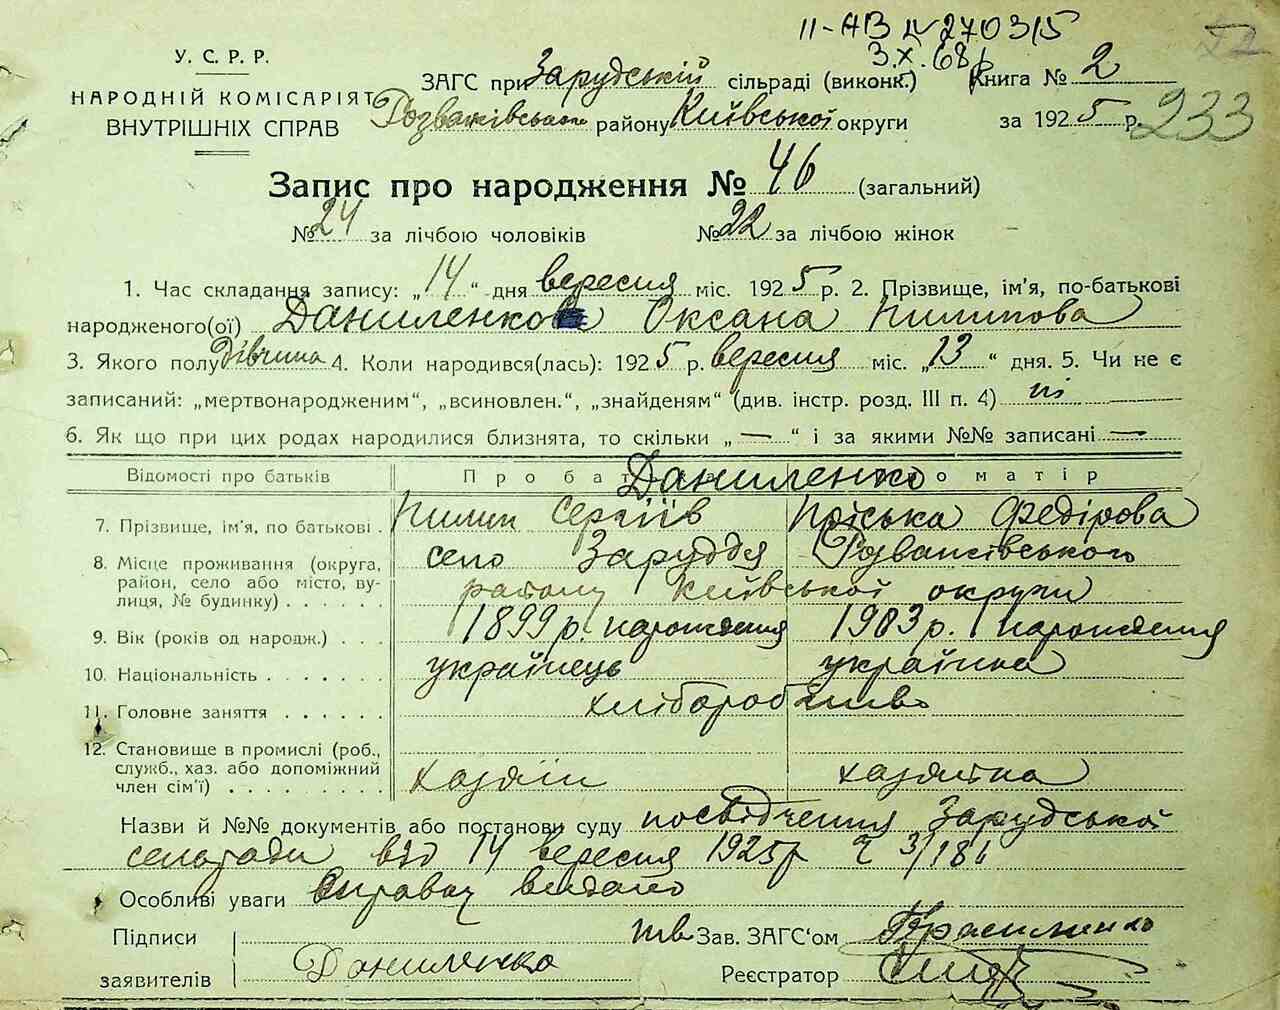 II-АВ № 270315
3.X.68р
У. С. Р. Р.
НАРОДНІЙ КОМІСАРІЯТ
ВНУТРІШНІХ СПРАВ
ЗАГС при Зарудській сільраді (виконк.) Книга № 2
Розважівського району Київської округи за 1925 р. 233
Запис про народження № 46 (загальний)
№ 24 за лічбою чоловіків № 22 за лічбою жінок
1. Час складання запису: „14“ дня вересня міс. 1925 р. 2. Прізвище, ім'я, по-батькові
народженого(ої) Даниленко Оксана Пилипова
3. Якого полу Дівчина 4. Коли народився(лась): 1925 р. вересня міс. „13“ дня. 5. Чи не є
записаний: „мертвонародженим“, „всиновлен.“, „знайденям“ (див. інстр. розд. III п. 4) ні
6. Як що при цих родах народилися близнята, то скільки „—“ і за якими №№ записані —
Відомості про батьків Про ба Даниленко о матір
7. Прізвище, ім'я, по батькові . Пилип Сергіїв Пріська Федірова
8. Місце проживання (округа, село Заруддя Розважівського
район, село або місто, ву- району Київської округи
лиця, № будинку) . . . . . .
9. Вік (років од народж.) . . . 1899 р. народження 1903 р. народження
10. Національність . . . . . . . українець українка
11. Головне заняття . . . . . . хліборобство
12. Становище в промислі (роб.,
служб., хаз. або допоміжний хазяїн хазяйка
член сім'ї) . . . . . . . . .
Назви й №№ документів або постанови суду посвідчення Зарудської
сельради від 14 вересня 1925р
Особливі уваги видано
Підписи твЗав. ЗАГС'ом
заявителів Даниленко Реєстратор